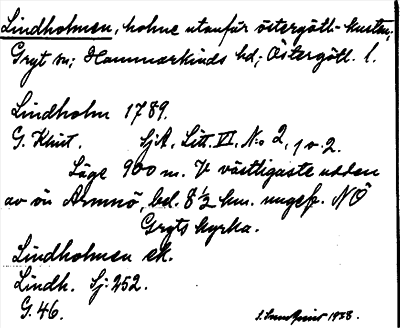 Lindholmen, holme utanför östergötl. kusten,
Gryt sn; Hammarkinds hd; Östergötl. l.
Lindholm 1789.
G. Klint. SjA, Litt. VI, N:o 2, 1 o. 2.
Läge 900 m. V västligaste udden
av ön Armnö, bel. 8 1/2 km. ungef. NÖ
Gryts kyrka.
Lindholmen ek.
Lindh. Sj: 252.
G. 46.